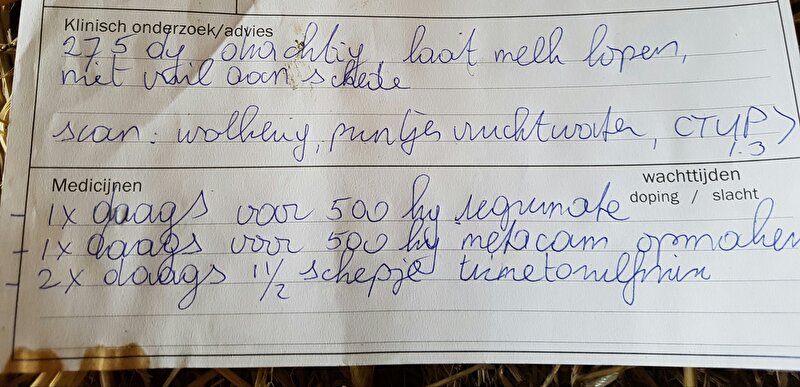 Klinisch onderzoek/advies
275 dg drachtig laat melk lopen,
niet vuil aan schede
scan: wolkerig, puntjes vruchtwater, CTUP >
1.3
Medicijnen
wachttijden
doping / slacht
- 1x daags voor 500 kg regumate
- 1x daags voor 500 kg metacam opmaken
- 2x daags 1 1/2 schepje trimetonilfmin